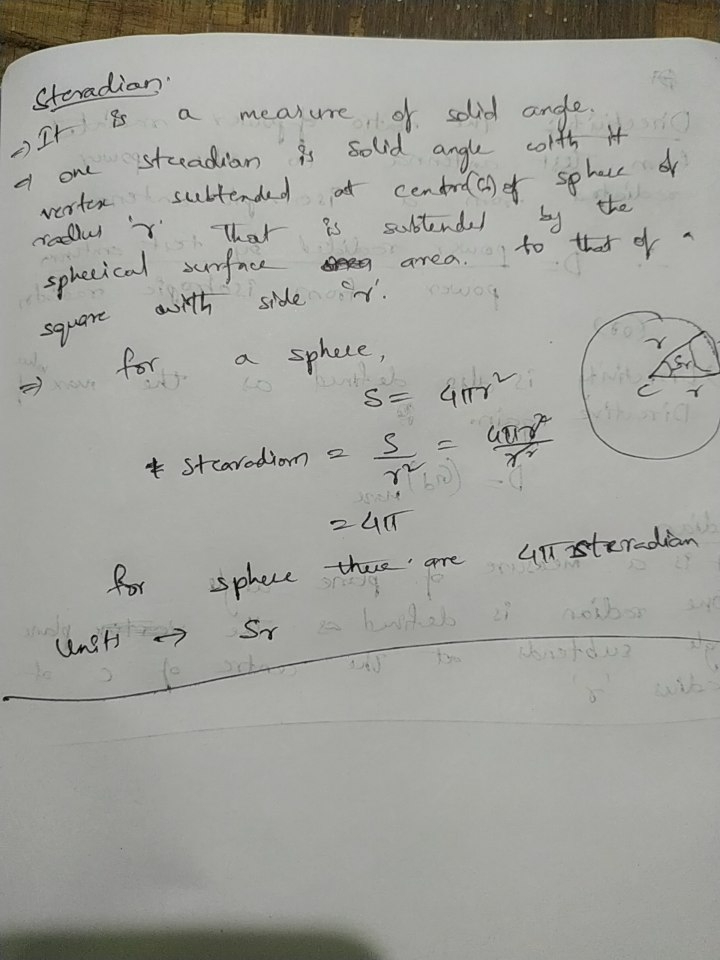 Steradian.
⇒ It is a measure of solid angle.
⇒ one steradian is solid angle with it
vertex subtended at centre(C) of sphere of
radius 'r'. That is subtended by the
spherical surface area. to that of a
square with side 'r'.
⇒ for a sphere,
S = 4πr²
* stearadiom = S/r² = 4πr²/r²
= 4π
for sphere there are 4π steradian
units → Sr
r
Sr
C r